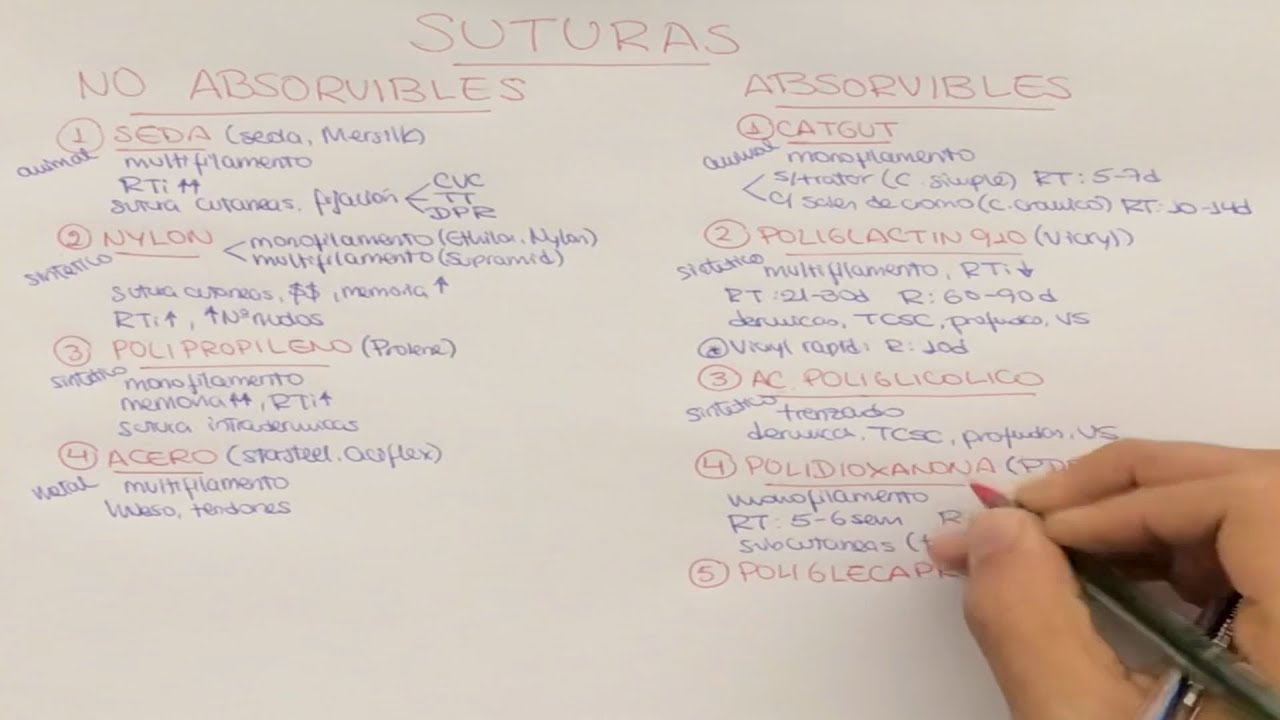 SUTURAS
NO ABSORVIBLES
① SEDA (seda, Mersilk)
animal
multifilamento
RTi ↑↑
sutura cutaneas, fijación < CVC
TT
DPR
② NYLON < monofilamento (Ethilon, Nylon)
multifilamento (Supramid)
sintetico
sutura cutaneas, $$, memoria ↑
RTi ↑, ↑Nº nudos
③ POLIPROPILENO (Prolene)
sintetico
monofilamento
memoria ↑↑, RTi ↑
sutura intradermicas
④ ACERO (Stasteel, Aciflex)
metal
multifilamento
hueso, tendones
ABSORVIBLES
① CATGUT
animal
monofilamento
< s/trator (C. simple) RT: 5-7d
c/ sales de cromo (C. cromico) RT: 10-14d
② POLIGLACTIN 910 (Vicryl)
sintetico
multifilamento, RTi ↓
RT: 21-30d R: 60-90d
dermicas, TCSC, profundas, VS
Vicryl rapid: R: 10d
③ AC. POLIGLICOLICO
sintetico
trenzado
dermica, TCSC, profundas, VS
④ POLIDIOXANONA (PD
monofilamento
RT: 5-6 sem R
subcutaneas (
⑤ POLIGLECAPR